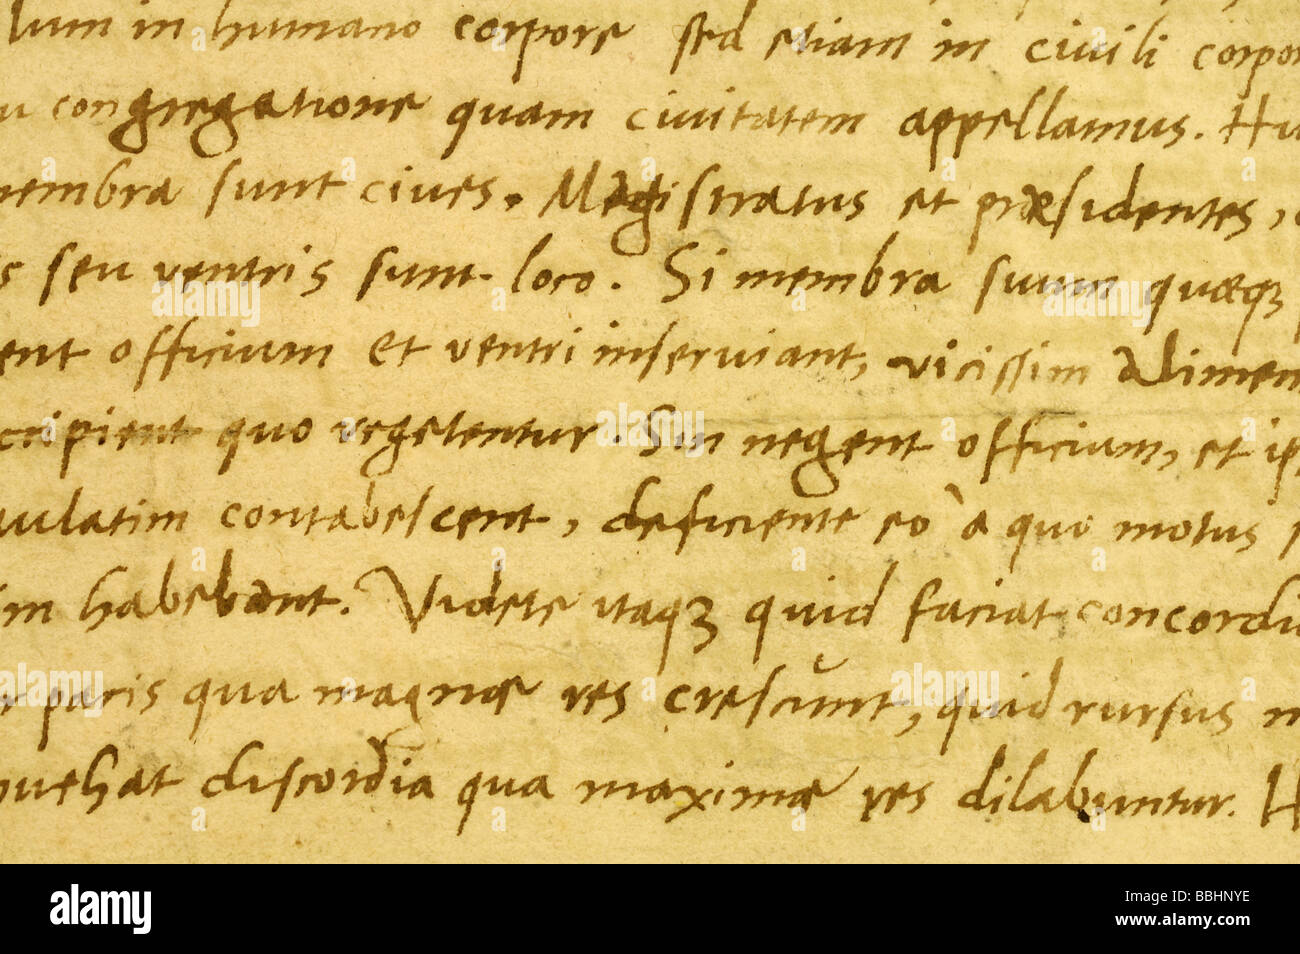 lum in humano corpore sed etiam in ciuili corpor
u congregatione quam ciuitatem appellamus. Hu
membra sunt ciues. Magistratus et præsidentes,
s seu ventris sunt loco. Si membra suum quæqꝫ
ent officium et ventri inseruiant, vicissim alimen
cipient quo vegetentur. Sin negent officium, et ip
aulatim contabescent, deficiente eo à quo motus
im habebant. Videte itaqꝫ quid faciat concordi
pacis qua magnæ res crescunt, quid rursus
inuehat discordia qua maximæ res dilabuntur. H
alamy
Image ID: BBHNYE
www.alamy.com